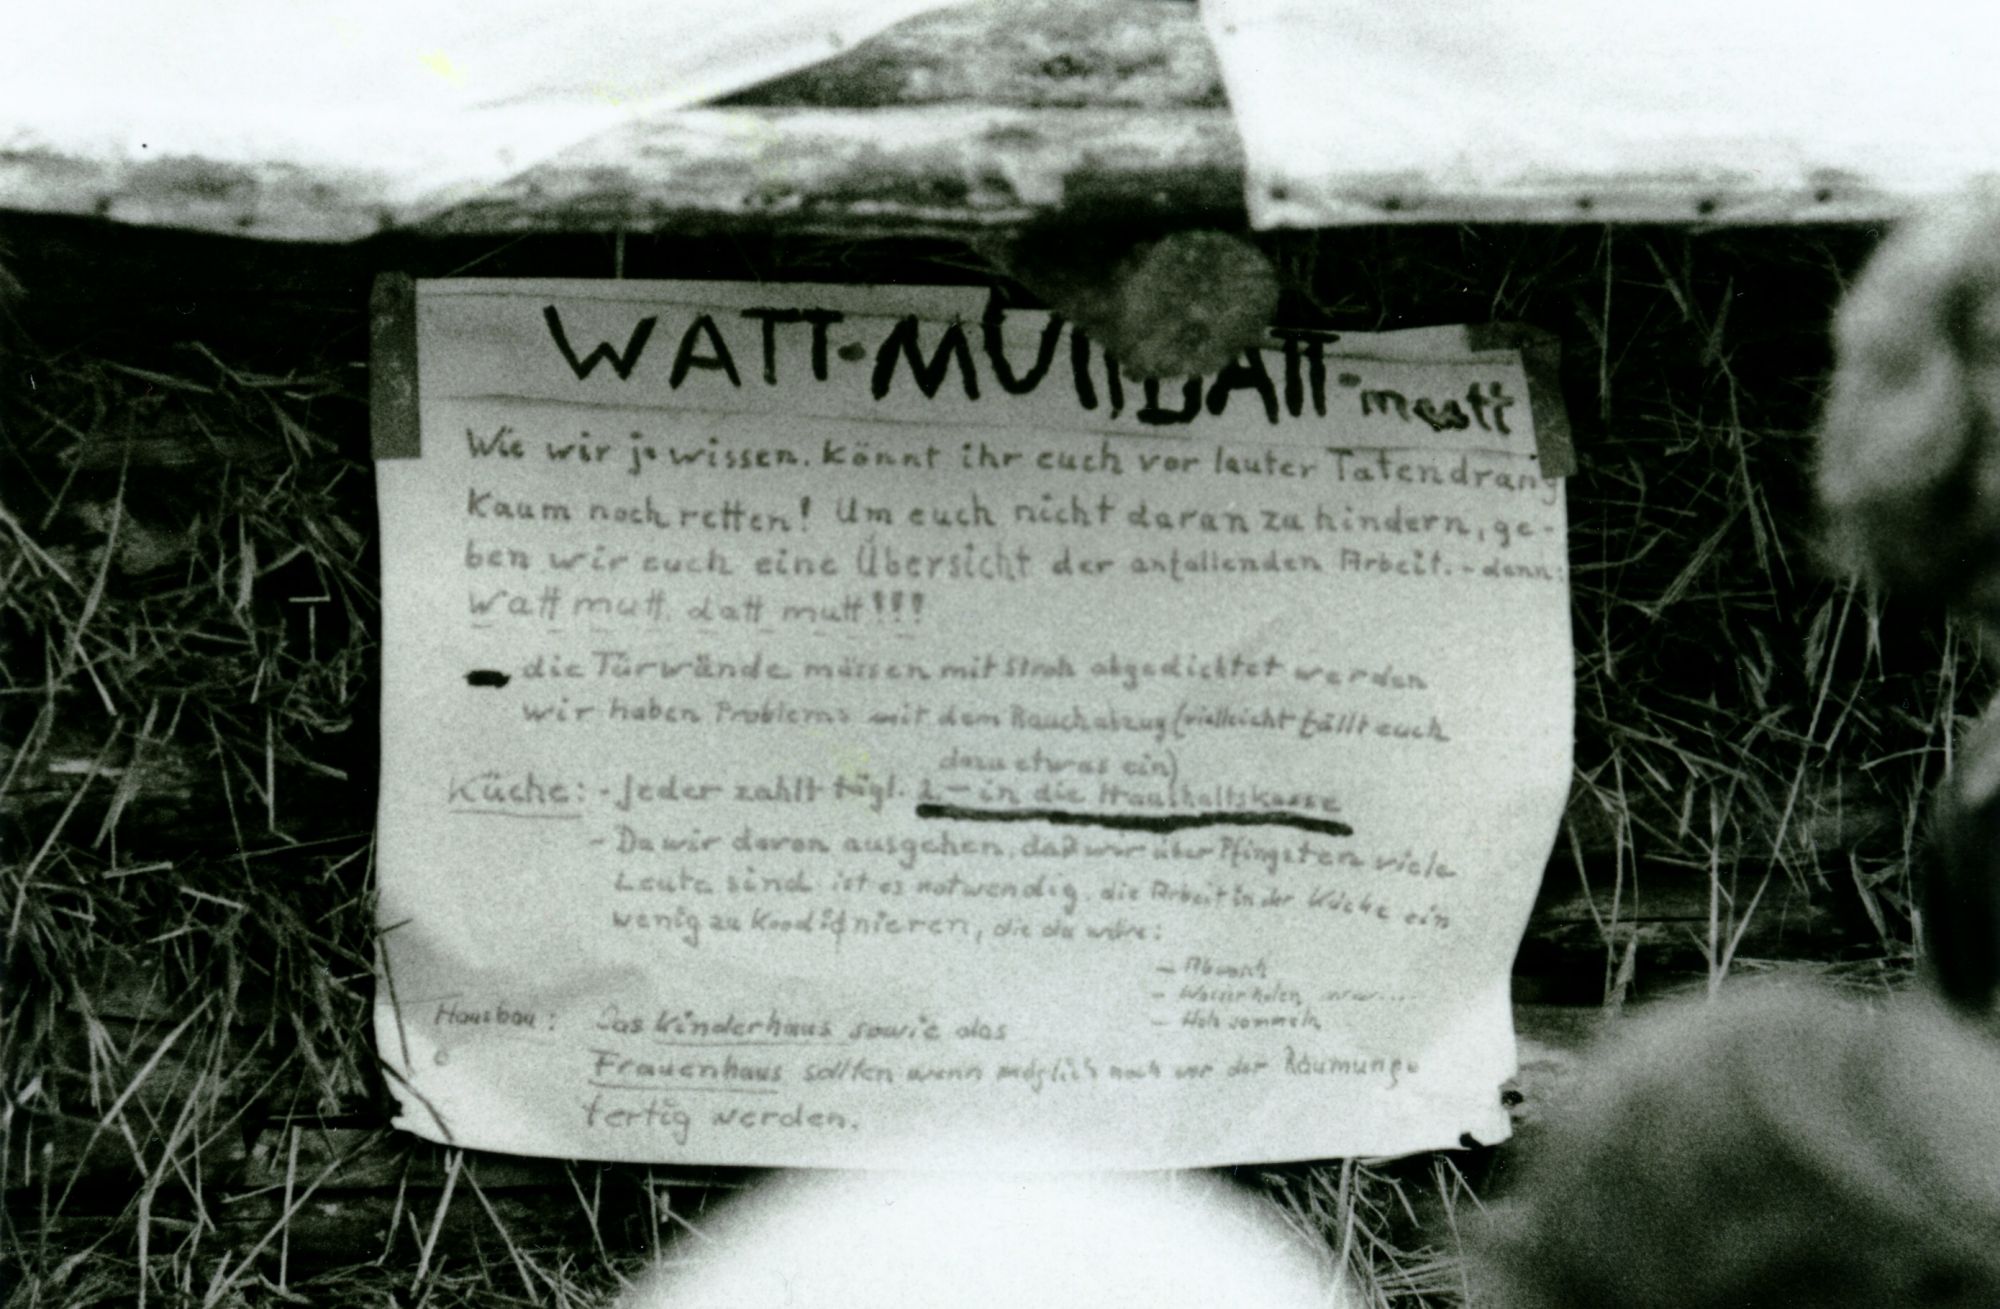 WATT-MUTT DATT-mutt
Wie wir ja wissen, könnt ihr euch vor lauter Tatendrang
kaum noch retten! Um euch nicht daran zu hindern, ge-
ben wir euch eine Übersicht der anfallenden Arbeit. - denn:
Watt mutt, datt mutt!!!
- die Türwände müssen mit Stroh abgedichtet werden
wir haben Probleme mit dem Rauchabzug (vielleicht fällt euch
dazu etwas ein)
Küche: - Jeder zahlt tägl. 2,- in die Haushaltskasse
- Da wir davon ausgehen, daß wir über Pfingsten viele
Leute sind ist es notwendig, die Arbeit in der Küche ein
wenig zu koordinieren, die da wäre:
- Abwasch
- Wasser holen
- Holz sammeln
Hausbau: Das Kinderhaus sowie das
Frauenhaus sollten wenn möglich noch vor der Räumung
fertig werden.